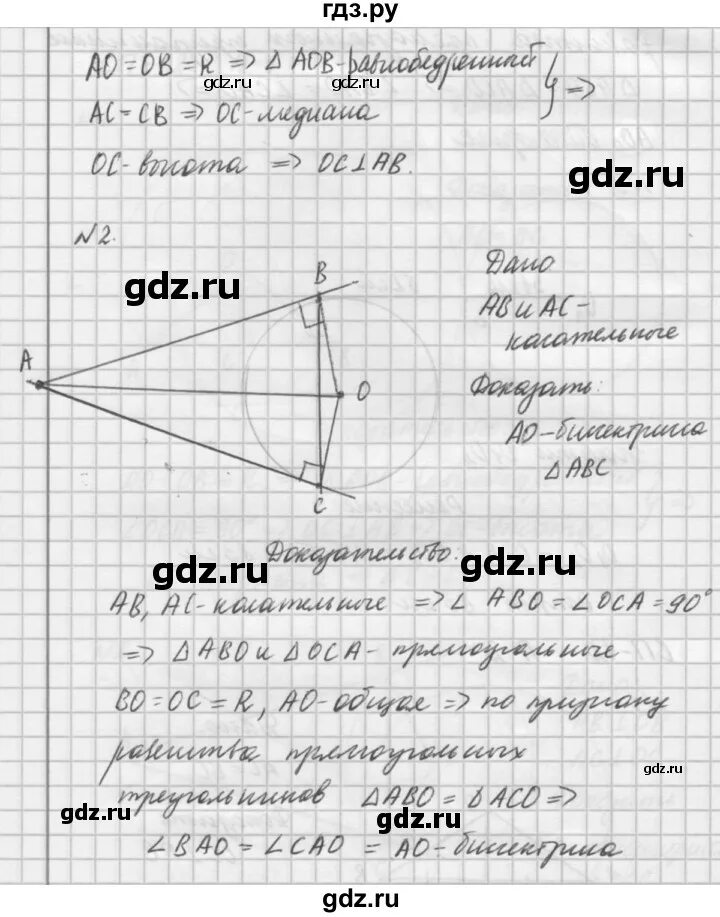 гдз.ру
AO = OB = R => △ AOB - равнобедренный
gdz.ru
gdz.ru
} =>
AC = CB => OC - медиана
OC - высота => OC ⊥ AB.
gdz.ru
N2.
gdz.ru
B
Дано
AB и AC -
касательные
gdz.ru
A
O
Доказать:
AO - биссектриса
△ ABC
C
Доказательство.
gdz.ru
gdz.ru
AB, AC - касательные => ∠ ABO = ∠ OCA = 90°
=> △ ABO и △ OCA - прямоугольные
BO = OC = R, AO - общая => по признаку
равенства прямоугольных
gdz.ru
треугольников △ ABO = △ ACO =>
gdz.ru
gdz.ru
∠ BAO = ∠ CAO = AO - биссектриса
gdz.ru